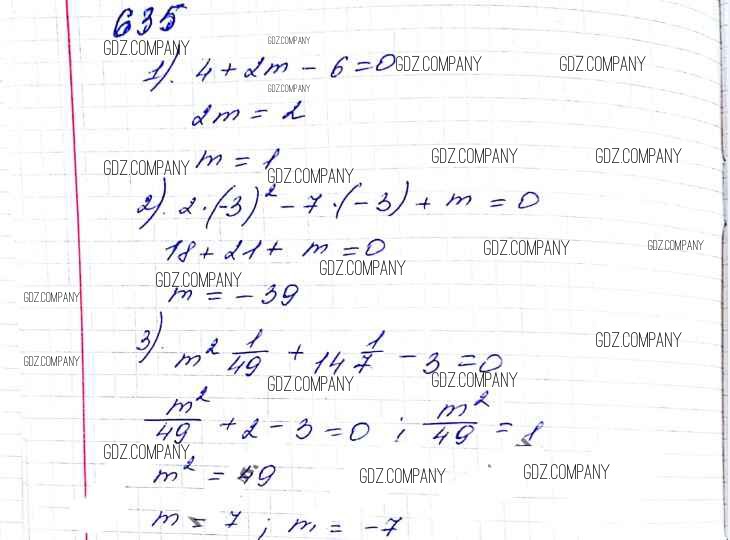 635
GDZ.COMPANY GDZ.COMPANY
1). 4 + 2m - 6 = 0 GDZ.COMPANY GDZ.COMPANY
GDZ.COMPANY
2m = 2
GDZ.COMPANY m = 1 GDZ.COMPANY GDZ.COMPANY GDZ.COMPANY
2). 2·(-3)² - 7·(-3) + m = 0
18 + 21 + m = 0 GDZ.COMPANY GDZ.COMPANY
GDZ.COMPANY GDZ.COMPANY
GDZ.COMPANY m = -39
3). m² 1/49 + 14 1/7 - 3 = 0 GDZ.COMPANY
GDZ.COMPANY GDZ.COMPANY GDZ.COMPANY
m²/49 + 2 - 3 = 0 ; m²/49 = 1
GDZ.COMPANY
m² = 49 GDZ.COMPANY GDZ.COMPANY
m = 7 ; m = -7